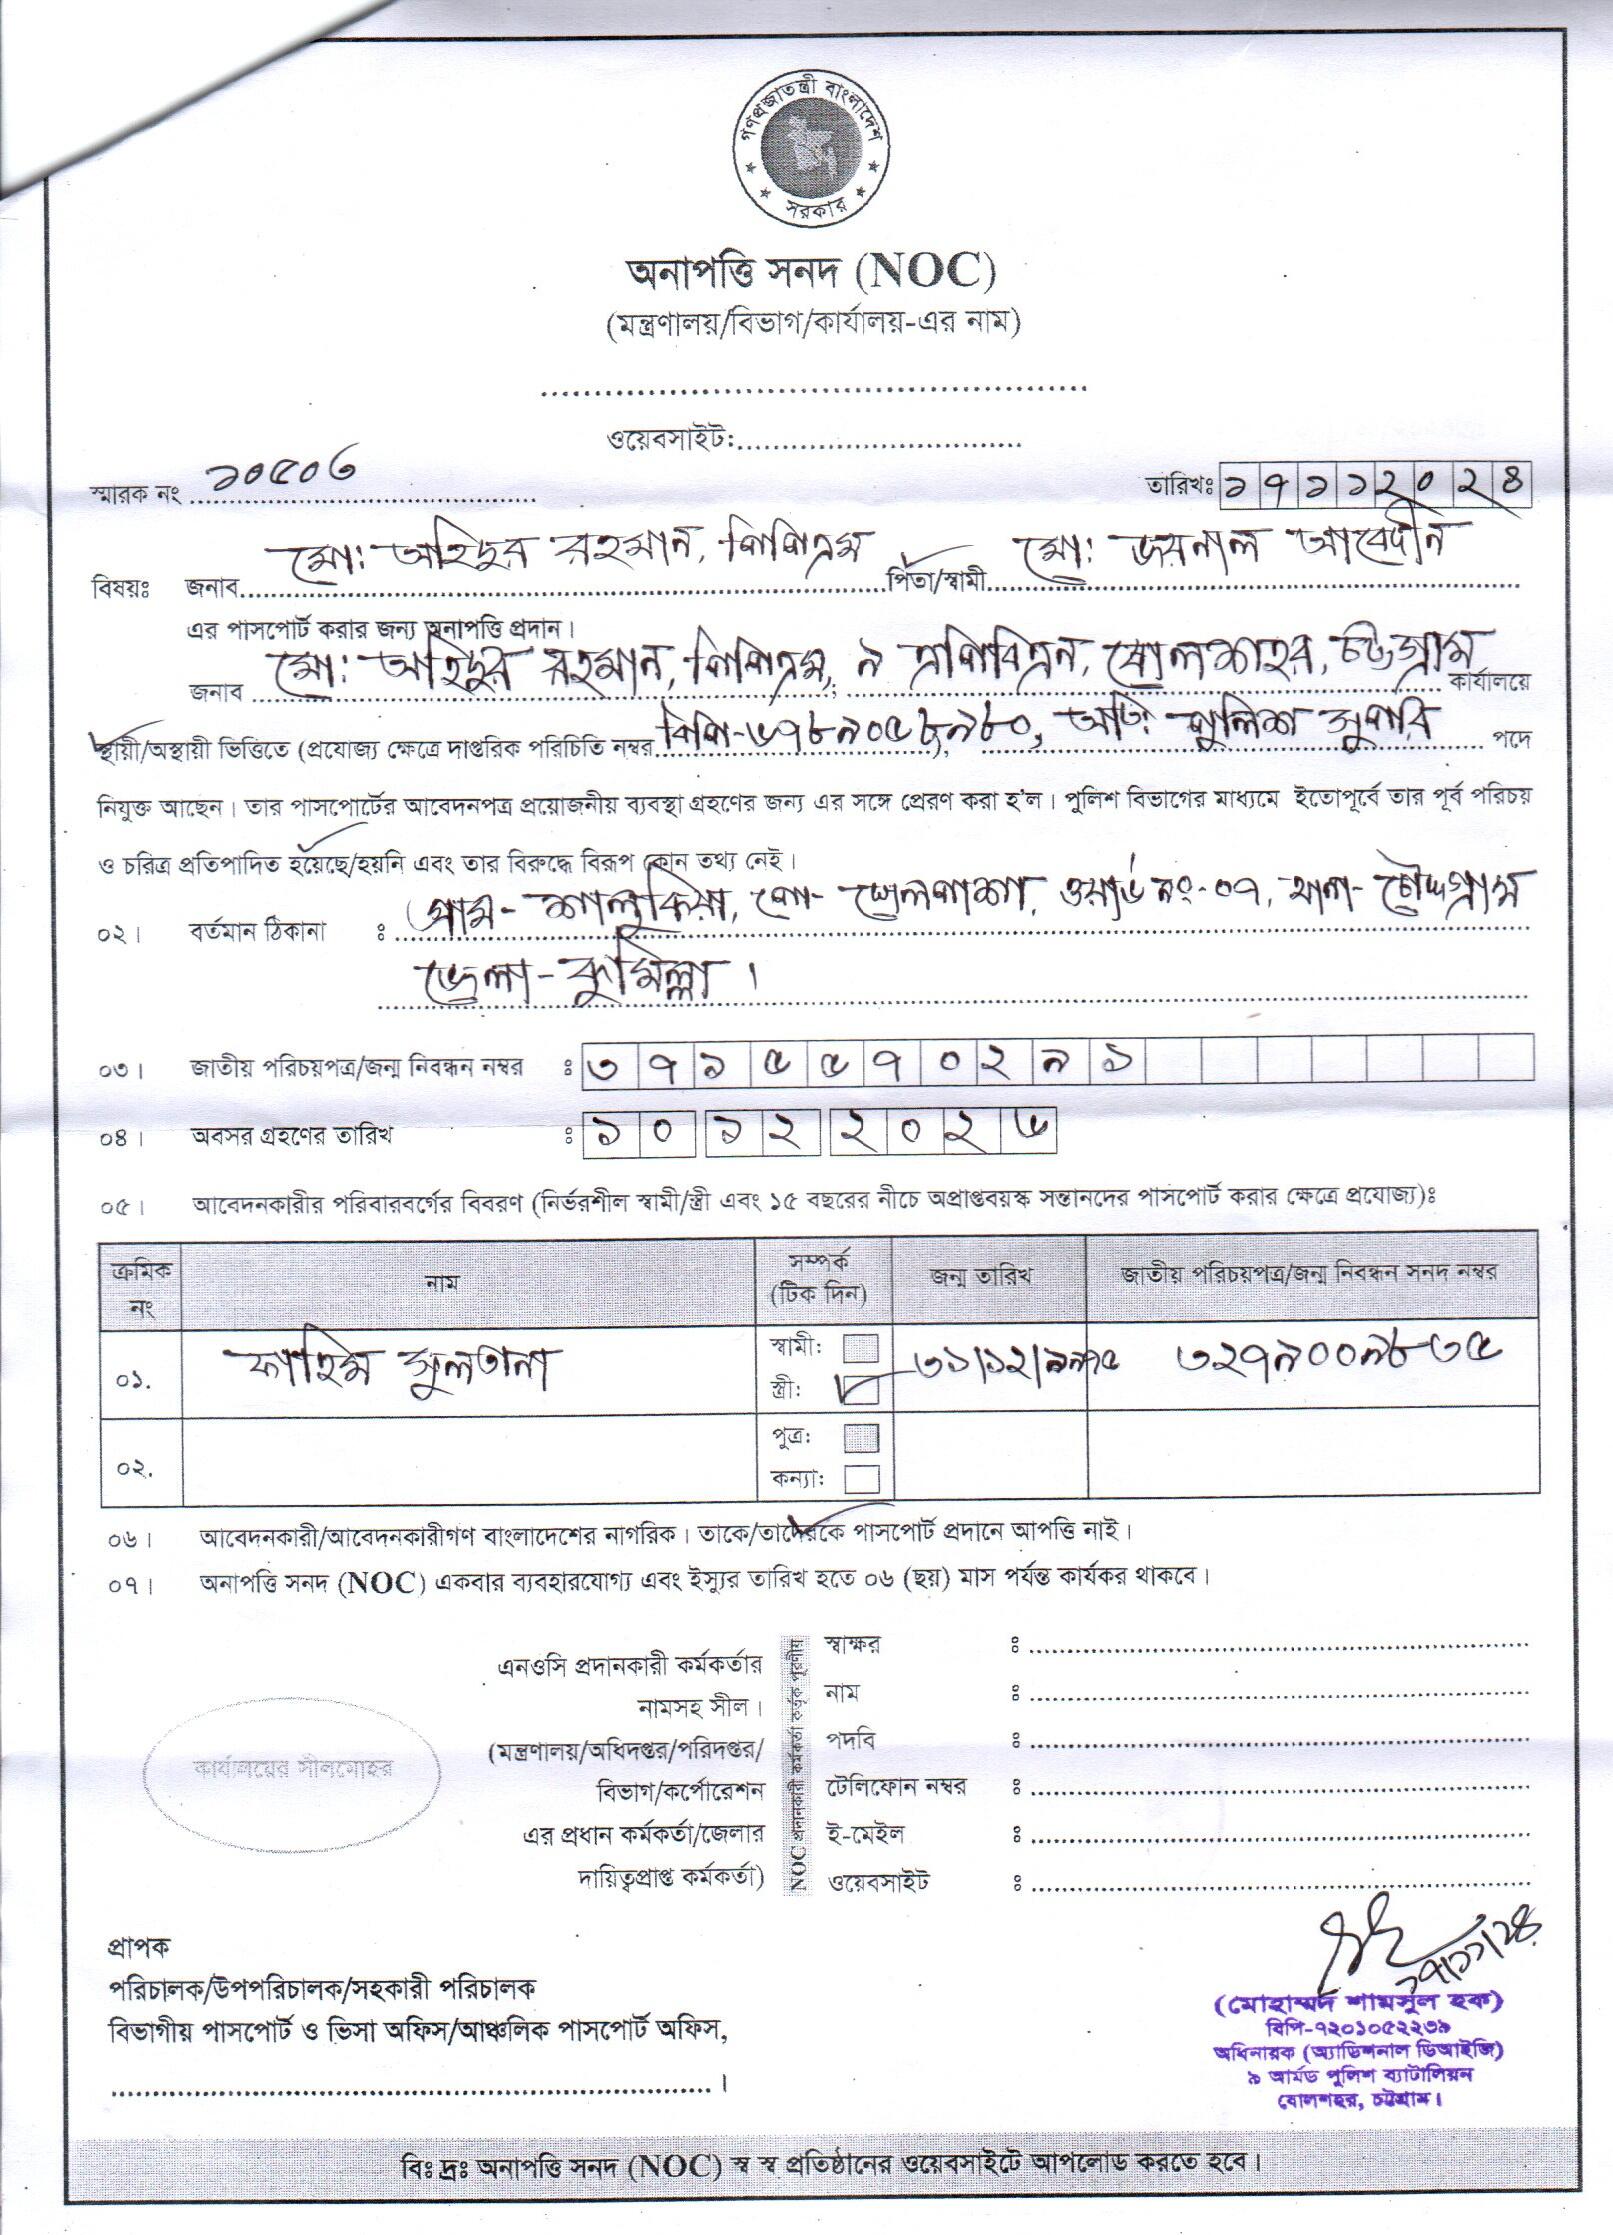 গণপ্রজাতন্ত্রী বাংলাদেশ
সরকার
অনাপত্তি সনদ (NOC)
(মন্ত্রণালয়/বিভাগ/কার্যালয়-এর নাম)
ওয়েবসাইট:
স্মারক নং ১০৫০৬ তারিখঃ ১৭১১২০২৪
বিষয়ঃ জনাব মো: অহিদুর রহমান, পিপিএম পিতা/স্বামী মো: জয়নাল আবেদীন
এর পাসপোর্ট করার জন্য অনাপত্তি প্রদান।
জনাব মো: অহিদুর রহমান, পিপিএম, ৯ এপিবিএন, ষোলশহর, চট্টগ্রাম কার্যালয়ে
স্থায়ী/অস্থায়ী ভিত্তিতে (প্রযোজ্য ক্ষেত্রে দাপ্তরিক পরিচিতি নম্বর বিপি-৬৭৮৯০৫৮৯৮০), অতি: পুলিশ সুপার পদে
নিযুক্ত আছেন। তার পাসপোর্টের আবেদনপত্র প্রয়োজনীয় ব্যবস্থা গ্রহণের জন্য এর সঙ্গে প্রেরণ করা হ'ল। পুলিশ বিভাগের মাধ্যমে ইতোপূর্বে তার পূর্ব পরিচয়
ও চরিত্র প্রতিপাদিত হয়েছে/হয়নি এবং তার বিরুদ্ধে বিরূপ কোন তথ্য নেই।
০২। বর্তমান ঠিকানা ঃ গ্রাম- শালুকিয়া, পো- গুণপাশা, ওয়ার্ড নং-০৭, থানা- চৌদ্দগ্রাম
জেলা- কুমিল্লা।
০৩। জাতীয় পরিচয়পত্র/জন্ম নিবন্ধন নম্বর ঃ ৩৭১৫৫৭০২৯১
০৪। অবসর গ্রহণের তারিখ ঃ ১০ ১২ ২০২৬
০৫। আবেদনকারীর পরিবারবর্গের বিবরণ (নির্ভরশীল স্বামী/স্ত্রী এবং ১৫ বছরের নীচে অপ্রাপ্তবয়স্ক সন্তানদের পাসপোর্ট করার ক্ষেত্রে প্রযোজ্য)ঃ
ক্রমিক নং নাম সম্পর্ক (টিক দিন) জন্ম তারিখ জাতীয় পরিচয়পত্র/জন্ম নিবন্ধন সনদ নম্বর
০১. ফাহিম সুলতানা স্বামী: স্ত্রী: ৩১/১২/১৯৭৫ ৩২৭৯০০৯৮৩৫
০২. পুত্র: কন্যা:
০৬। আবেদনকারী/আবেদনকারীগণ বাংলাদেশের নাগরিক। তাকে/তাদেরকে পাসপোর্ট প্রদানে আপত্তি নাই।
০৭। অনাপত্তি সনদ (NOC) একবার ব্যবহারযোগ্য এবং ইস্যুর তারিখ হতে ০৬ (ছয়) মাস পর্যন্ত কার্যকর থাকবে।
কার্যালয়ের সীলমোহর
এনওসি প্রদানকারী কর্মকর্তার
নামসহ সীল।
(মন্ত্রণালয়/অধিদপ্তর/পরিদপ্তর/
বিভাগ/কর্পোরেশন
এর প্রধান কর্মকর্তা/জেলার
দায়িত্বপ্রাপ্ত কর্মকর্তা)
NOC প্রদানকারী কর্মকর্তা কর্তৃক পূরণীয়
স্বাক্ষর ঃ
নাম ঃ
পদবি ঃ
টেলিফোন নম্বর ঃ
ই-মেইল ঃ
ওয়েবসাইট ঃ
প্রাপক
পরিচালক/উপপরিচালক/সহকারী পরিচালক
বিভাগীয় পাসপোর্ট ও ভিসা অফিস/আঞ্চলিক পাসপোর্ট অফিস,
১৭/১১/২৪
(মোহাম্মদ শামসুল হক)
বিপি-৭২০১০৫২২৩৯
অধিনায়ক (অ্যাডিশনাল ডিআইজি)
৯ আর্মড পুলিশ ব্যাটালিয়ন
ষোলশহর, চট্টগ্রাম।
বিঃ দ্রঃ অনাপত্তি সনদ (NOC) স্ব স্ব প্রতিষ্ঠানের ওয়েবসাইটে আপলোড করতে হবে।